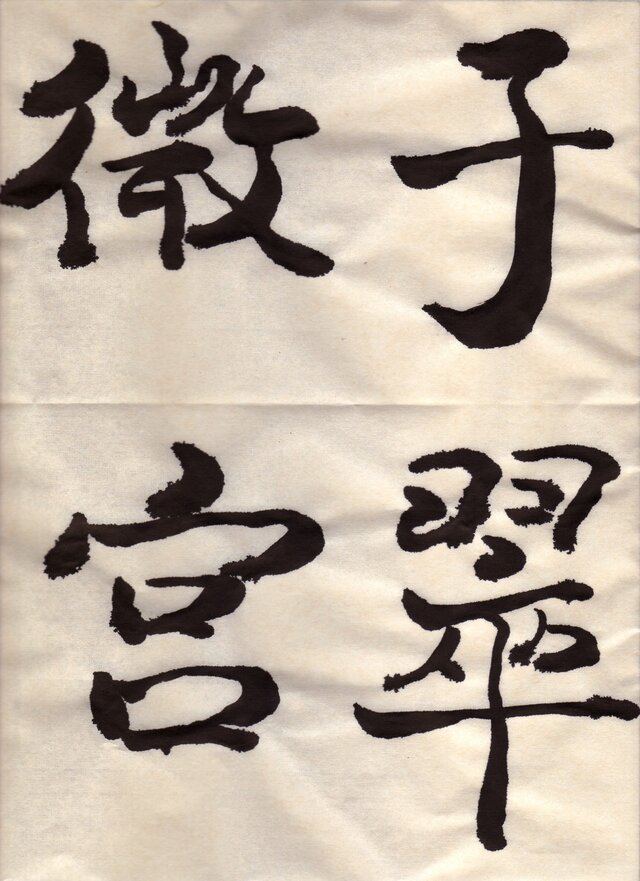 子翠
微宮